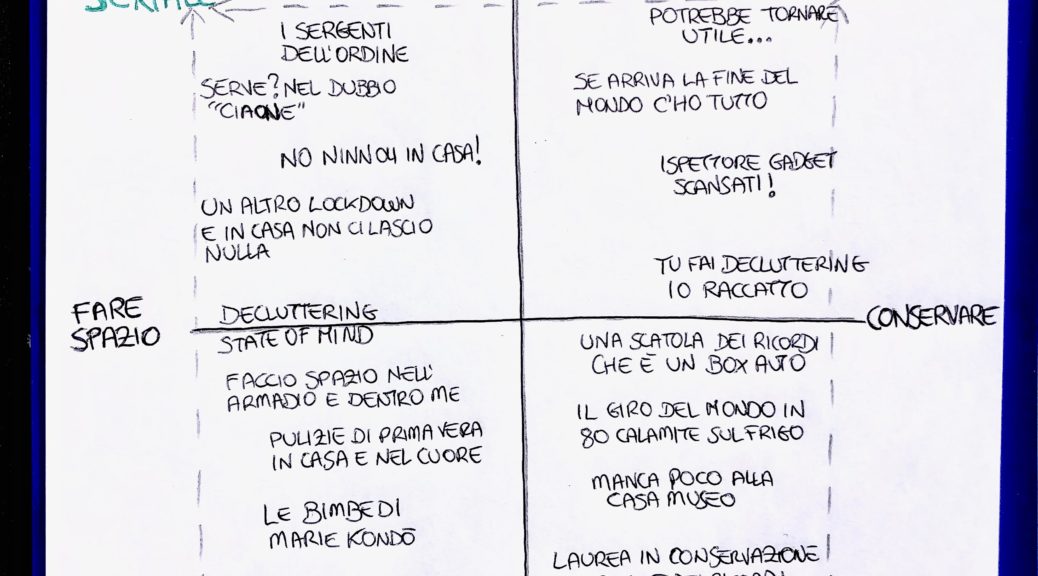 I SERGENTI
DELL'ORDINE
SERVE? NEL DUBBIO
"CIAONE"
NO NINNOLI IN CASA!
UN ALTRO LOCKDOWN
E IN CASA NON CI LASCIO
NULLA
POTREBBE TORNARE
UTILE...
SE ARRIVA LA FINE DEL
MONDO C'HO TUTTO
ISPETTORE GADGET
SCANSATI!
TU FAI DECLUTTERING
IO RACCATTO
FARE
SPAZIO
DECLUTTERING
STATE OF MIND
CONSERVARE
FACCIO SPAZIO NELL'
ARMADIO E DENTRO ME
PULIZIE DI PRIMAVERA
IN CASA E NEL CUORE
LE BIMBE DI
MARIE KONDŌ
UNA SCATOLA DEI RICORDI
CHE È UN BOX AUTO
IL GIRO DEL MONDO IN
80 CALAMITE SUL FRIGO
MANCA POCO ALLA
CASA MUSEO
LAUREA IN CONSERVAZIONE